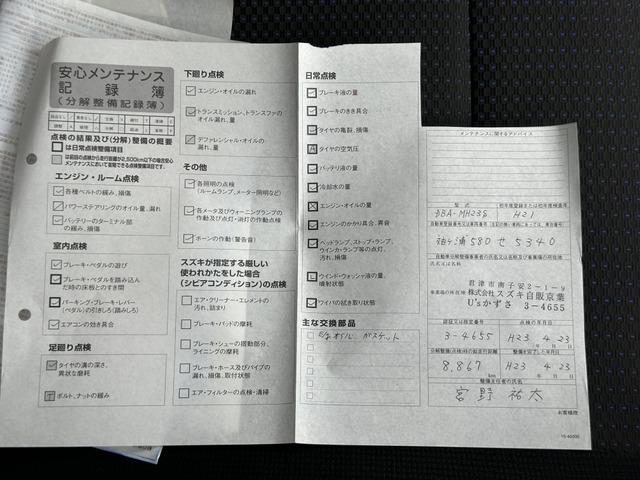 安心メンテナンス
記録簿
(分解整備記録簿)
点検の結果及び(分解)整備の概要
は日常点検整備項目
エンジン・ルーム点検
各種ベルトの緩み、損傷
パワーステアリングのオイル量、漏れ
バッテリーのターミナル部
の緩み、腐食
室内点検
ブレーキ・ペダルの遊び
ブレーキ・ペダルを踏み込ん
だ時の床板とのすき間
パーキング・ブレーキ・レバー
(ペダル)の引きしろ(踏みしろ)
エアコンの効き具合
足廻り点検
タイヤの溝の深さ、
異状な磨耗
ボルト、ナットの緩み
下廻り点検
エンジン・オイルの漏れ
トランスミッション、トランスファの
オイル漏れ、量
デファレンシャル・オイルの
漏れ、量
その他
各照明の点検
(ルームランプ、メーター照明など)
各メータ及びウォーニングランプの
作動及び点灯・消灯の作動点検
ホーンの作動(警告音)
スズキが指定する厳しい
使われかたをした場合
(シビアコンディション)の点検
エア・クリーナー・エレメントの
汚れ、詰まり
ブレーキ・パッドの摩耗
ブレーキ・シューの摺動部分、
ライニングの摩耗
ブレーキ・ホース及びパイプの
漏れ、損傷、取付状態
エア・フィルターの点検・清掃
日常点検
ブレーキ液の量
ブレーキのきき具合
タイヤの亀裂、損傷
タイヤの空気圧
バッテリ液の量
冷却水の量
エンジン・オイルの量
エンジンのかかり具合、異音
ヘッドランプ、ストップ・ランプ、
ウインカ・ランプ等の点灯、
汚れ、損傷
ウインド・ウォッシャ液の量、
噴射状態
ワイパの拭き取り状態
主な交換部品
E/gオイル ガスケット
メンテナンスに関するアドバイス
型式
DBA-MH23S
H21
袖ヶ浦 580 せ 5340
氏名又は名称
君津市南子安2-1-9
株式会社スズキ自販京葉
U'sかずさ 3-4655
認証又は指定番号
点検の年月日
3-4655
H23 4 23
年 月 日
整備を完了した年月日
8,867
km
H23 4 23
年 月 日
整備主任者の氏名
宮野 祐太
お客様控